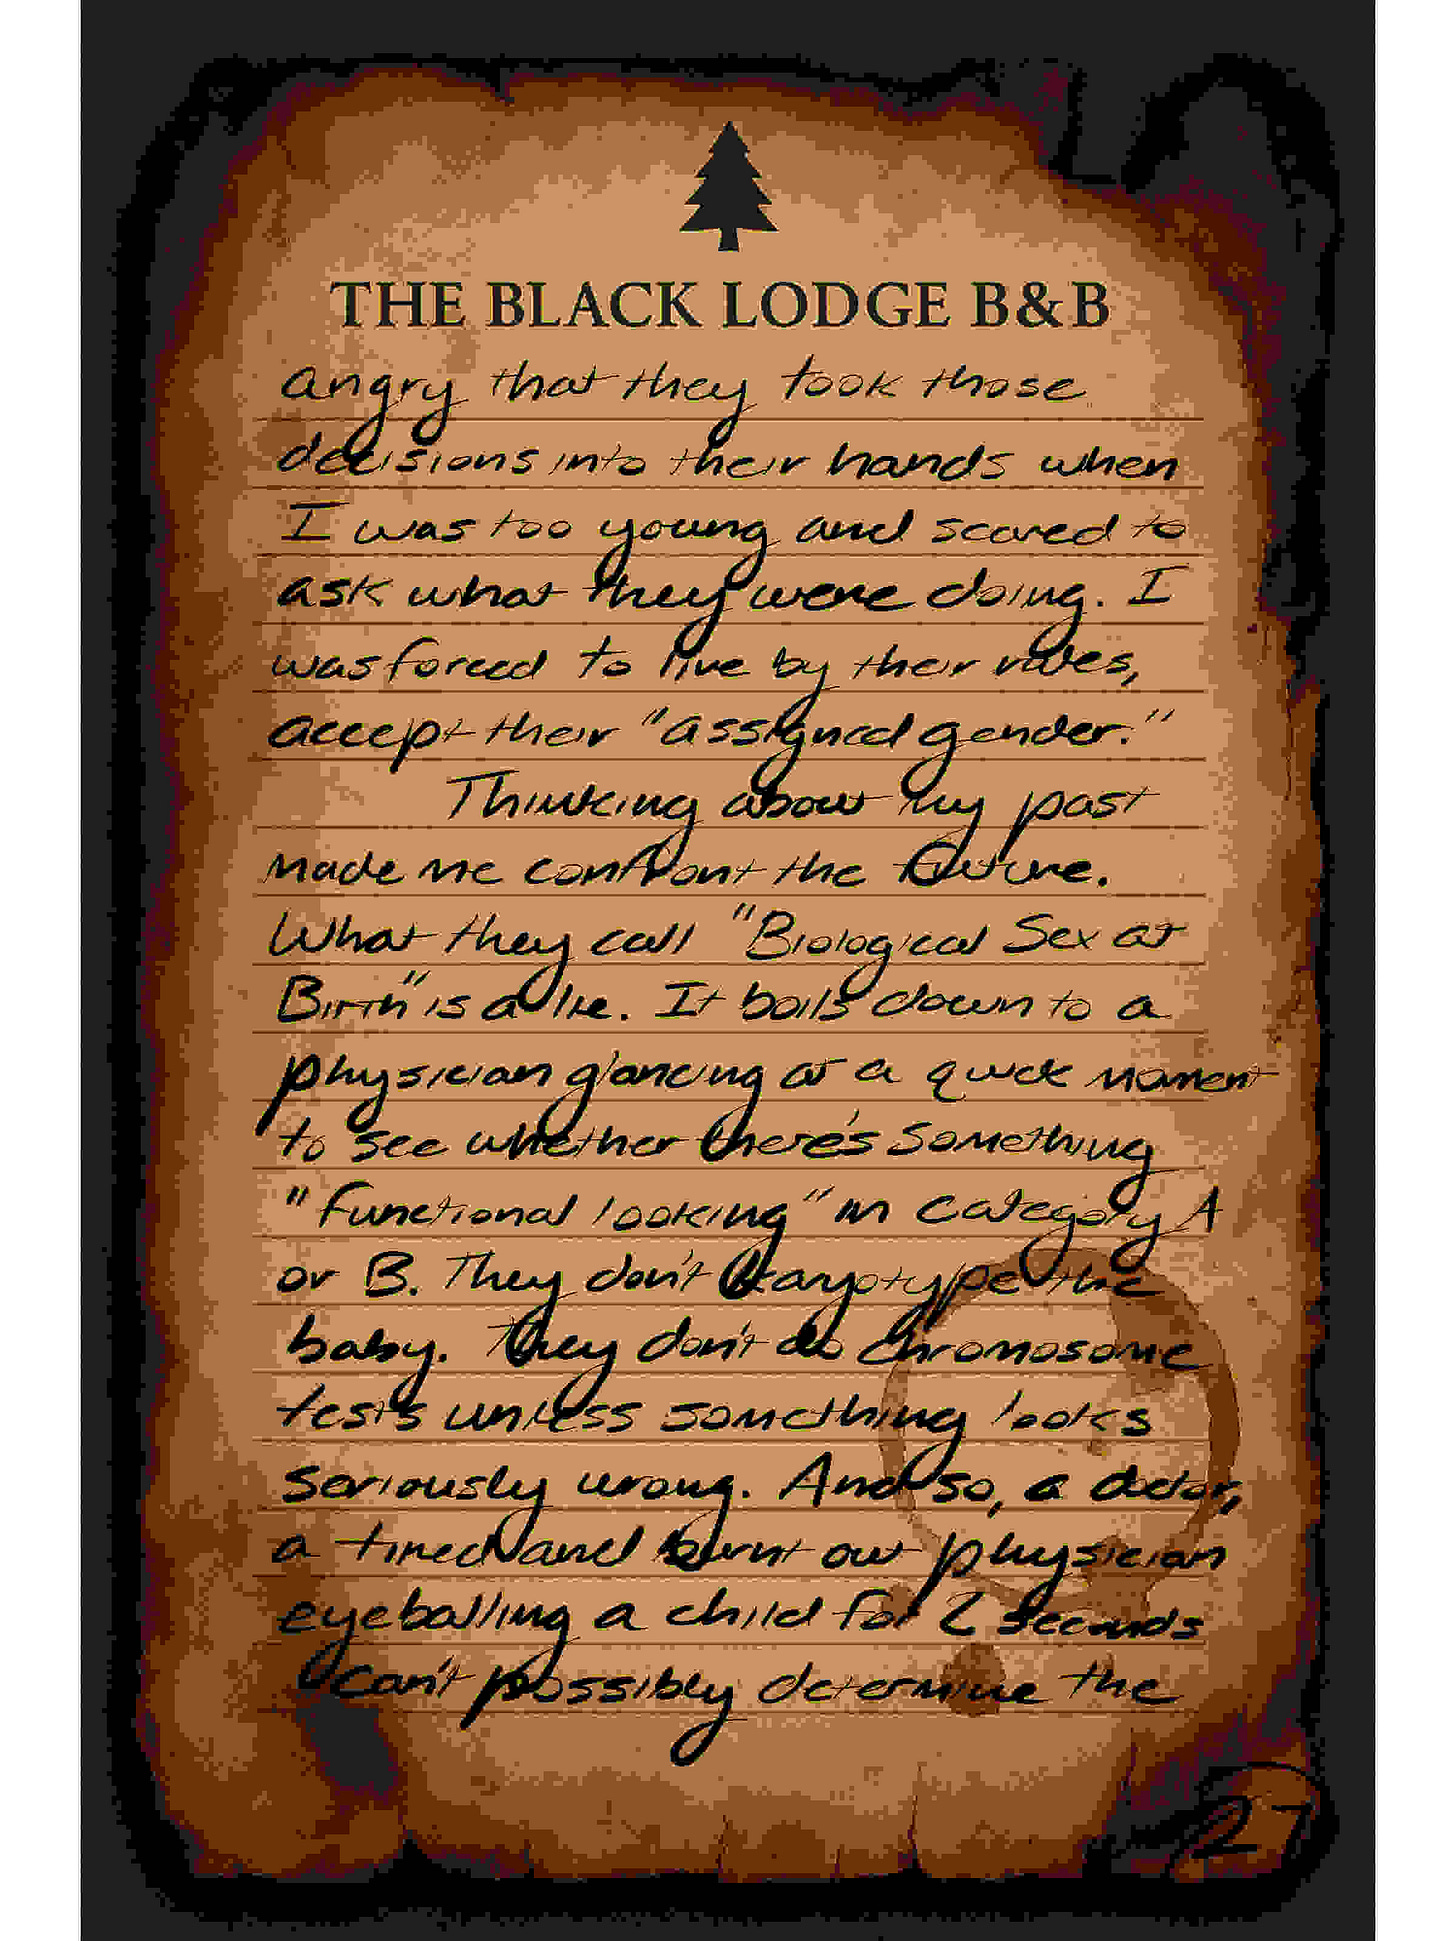 THE BLACK LODGE B&B
angry that they took those
decisions into their hands when
I was too young and scared to
ask what they were doing. I
was forced to live by their rules,
accept their "assigned gender."
Thinking about my past
made me confront the future.
What they call "Biological Sex at
Birth" is a lie. It boils down to a
physician glancing at a quick moment
to see whether there's something
"functional looking" in category A
or B. They don't karyotype the
baby. They don't do chromosome
tests unless something looks
seriously wrong. And so, a doctor,
a tired and burnt out physician
eyeballing a child for 2 seconds
can't possibly determine the
27